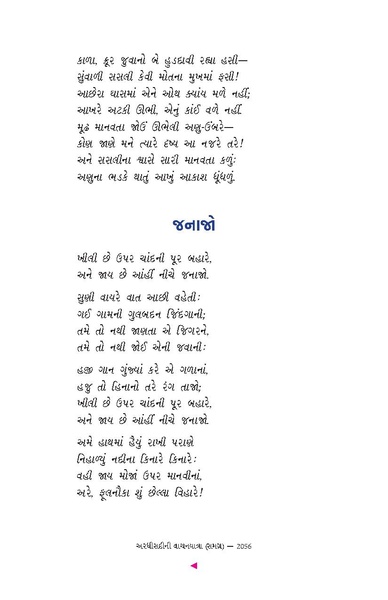 કાળા, ક્રૂર જુવાનો બે હુડદાવી રહ્યા હસી—
સુંવાળી સસલી કેવી મોતના મુખમાં ફસી!
આછેરા ઘાસમાં એને ઓથ ક્યાંય મળે નહીં;
આખરે અટકી ઊભી, એનું કાંઈ વળે નહીં.
મૂઢ માનવતા જોઉં ઊભેલી અણુ-ઉંબરે—
કોણ જાણે મને ત્યારે દૃષ્ય આ નજરે તરે!
અને સસલીના શ્વાસે સારી માનવતા કળું:
અણુના ભડકે થાતું આખું આકાશ ધૂંધળું.
જનાજો
ખીલી છે ઉપર ચાંદની પૂર બહારે,
અને જાય છે આંહીં નીચે જનાજો.
સુણી વાયરે વાત આછી વહેતી:
ગઈ ગામની ગુલબદન જિંદગાની;
તમે તો નથી જાણતા એ જિગરને,
તમે તો નથી જોઈ એની જવાની:
હજી ગાન ગુંજ્યાં કરે એ ગળાનાં,
હજુ તો હિનાનો તરે રંગ તાજો;
ખીલી છે ઉપર ચાંદની પૂર બહારે,
અને જાય છે આંહીં નીચે જનાજો.
અમે હાથમાં હૈયું રાખી પરાણે
નિહાળ્યું નદીના કિનારે કિનારે:
વહી જાય મોજાં ઉપર માનવીનાં,
અરે, ફૂલનૌકા શું છેલ્લા વિહારે!
અરધીસદીની વાચનયાત્રા (સમગ્ર) — 2056